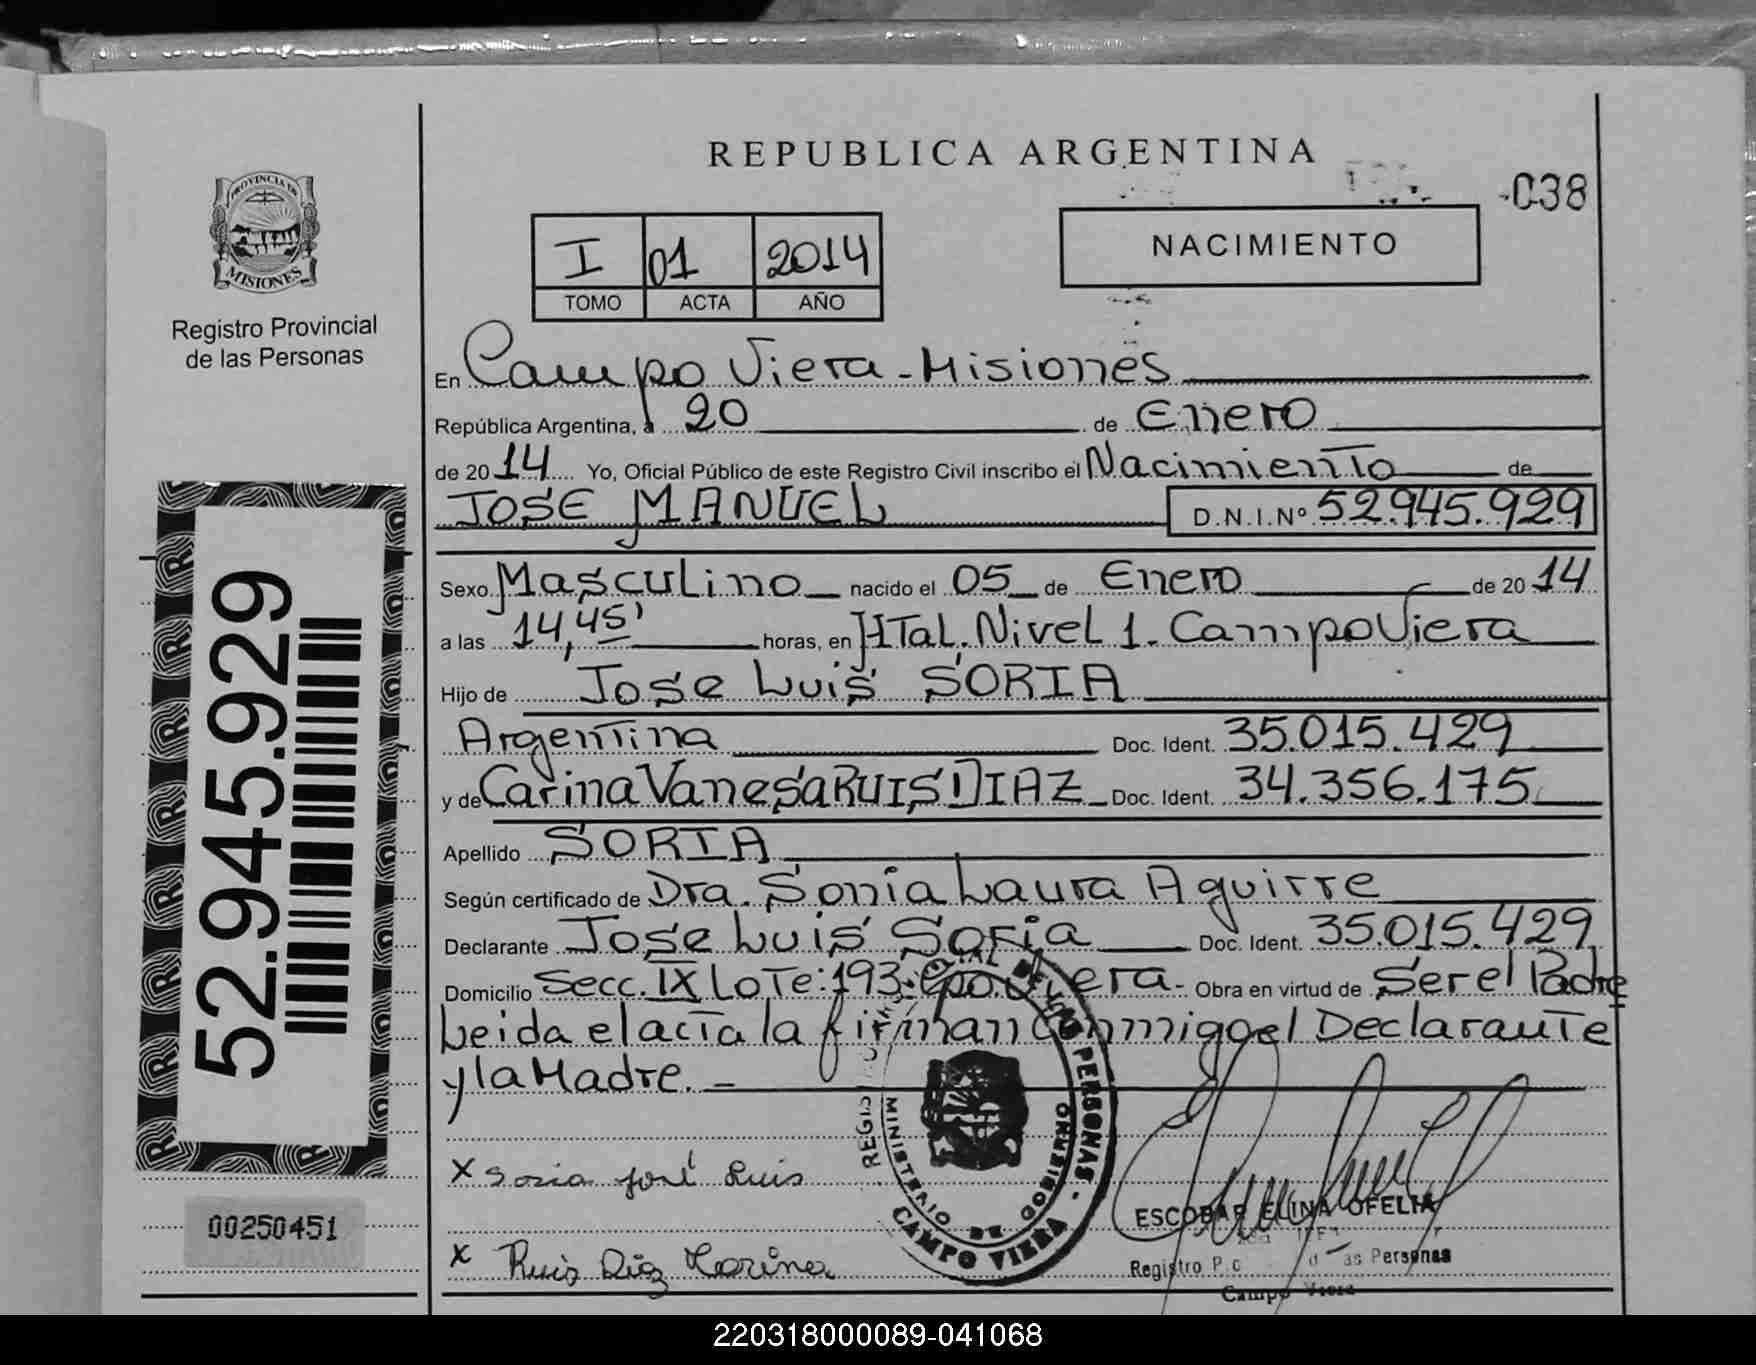 REPUBLICA ARGENTINA
-038
PROVINCIA DE
MISIONES
Registro Provincial
de las Personas
I 01 2014
TOMO ACTA AÑO
NACIMIENTO
En Campo Viera - Misiones
República Argentina, a 20 de Enero
de 2014 Yo, Oficial Público de este Registro Civil inscribo el Nacimiento de
JOSE MANUEL D.N.I.Nº 52.945.929
Sexo Masculino nacido el 05 de Enero de 2014
a las 14,45' horas, en HTal. Nivel 1. Campo Viera
Hijo de Jose Luis SORIA
Argentina Doc. Ident. 35.015.429
y de Carina Vanesa RUIS DIAZ Doc. Ident. 34.356.175
Apellido SORIA
Según certificado de Dra. Sonia Laura Aguirre
Declarante Jose Luis Soria Doc. Ident. 35.015.429
Domicilio Secc. IX LoTe: 193. Cpo. Viera - Obra en virtud de Ser el Padre
Leida el acta la firman conmigo el Declarante
y la Madre. -
52.945.929
00250451
x Soria José Luis
x Ruis Diaz Carina
MINISTERIO DE GOBIERNO
CAMPO VIERA
ESCOBAR ELINA OFELIA
Registro Personas
Campo Viera
220318000089-041068